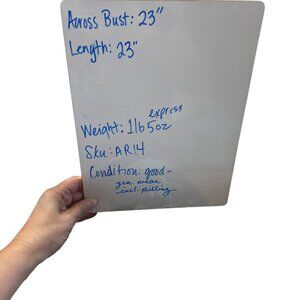 Across Bust: 23"
Length: 23"
express
Weight: 1lb 5oz
Sku: AR14
Condition: good-
gen wear
incl. pilling